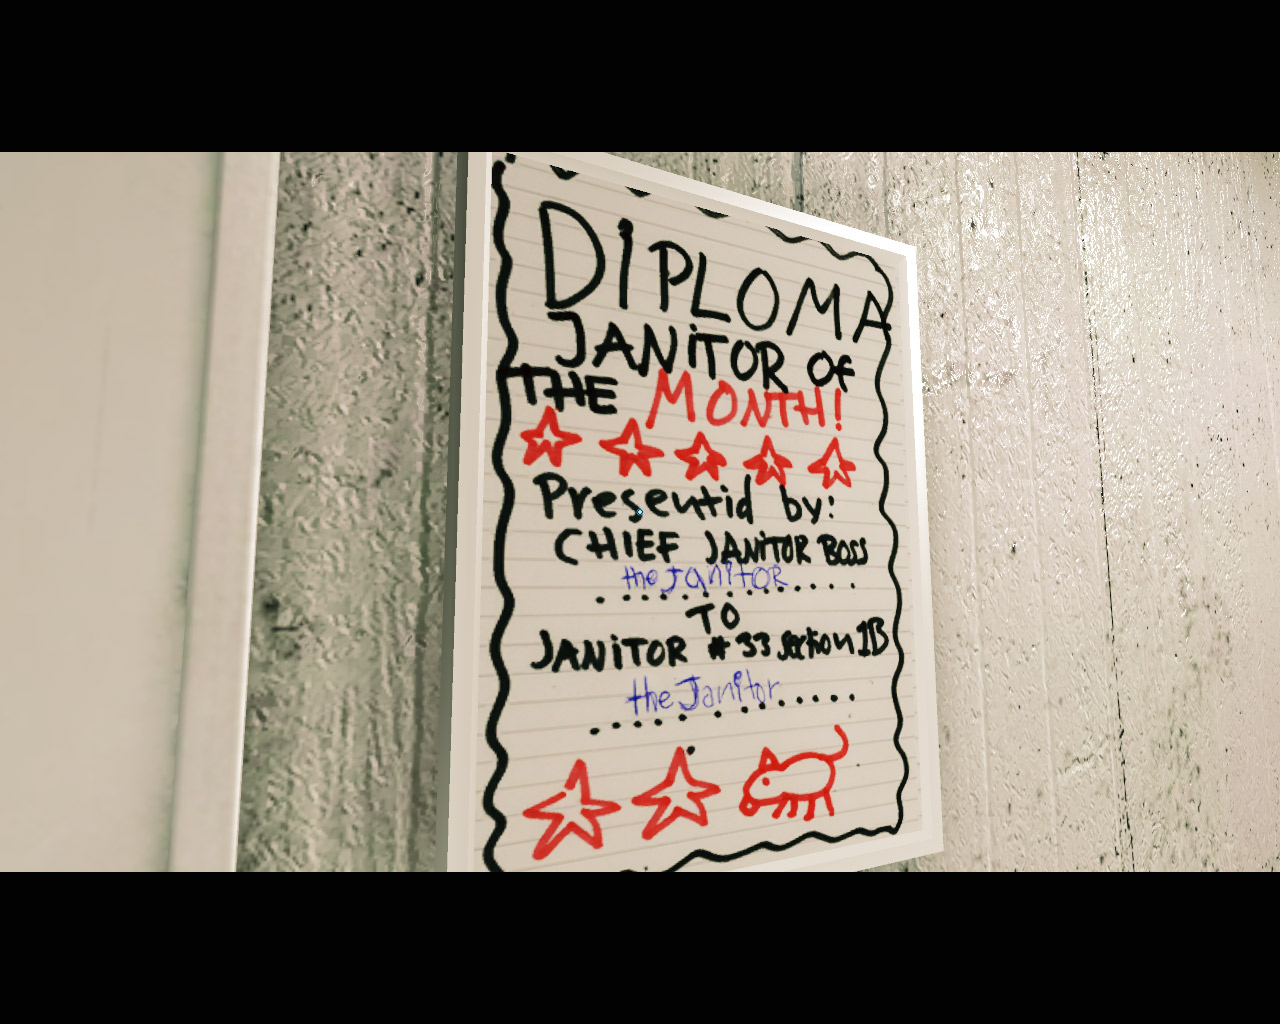 DiPLOMA
JANiTOR Of
THE MONTH!
Presentid by:
CHIEF JANiTOR BOSS
the JanitOR
TO
JANiTOR # 33 section 1B
the Janitor